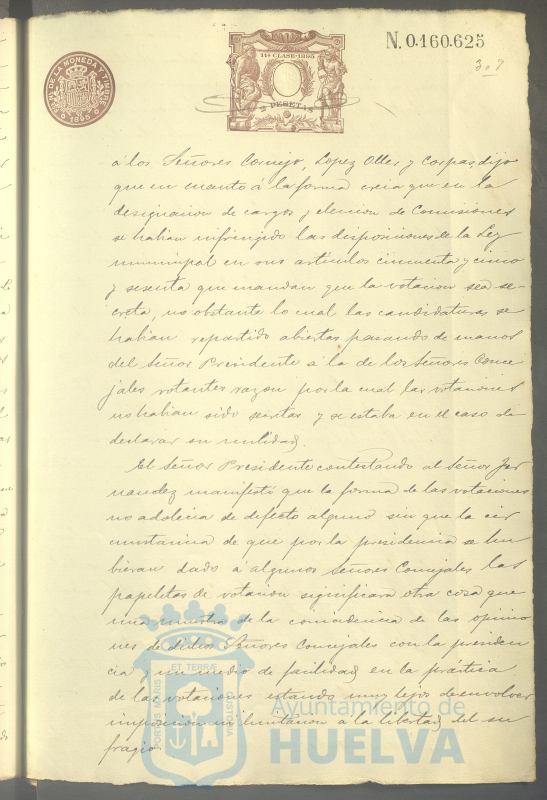 N. 0.160.625
11ª CLASE-1895
2 PESETAS
DE LA MONEDA Y TIMBRE
1895
307
á los Señores Cornejo, Lopez Oller y Corpas, dijo
que en cuanto á la forma creia que en la
designacion de cargos y eleccion de Comisiones
se habian infringido las disposiciones de la Ley
municipal en sus articulos cincuenta y cinco
y sesenta que mandan que la votacion sea se-
creta, no obstante lo cual las candidaturas se
habian repartido abiertas pasando de manos
del Señor Presidente á la de los Señores Conce
jales votantes razon por la cual las votaciones
no habian sido secretas y se estaba en el caso de
declarar su nulidad.
El Señor Presidente contestando al Señor Fer
nandez manifestó que la forma de las votaciones
no adolecia de defecto alguno sin que la cir
cunstancia de que por la presidencia se hu
bieran dado á algunos Señores Concejales las
papeletas de votacion significara otra cosa que
una muestra de la coincidencia de las opinio
nes de dichos Señores Concejales con la presiden
cia y un medio de facilidad en la práctica
de las votaciones estando muy lejos de envolver
imposicion ni limitacion a la libertad del su
fragio.
PORTUS MARIS ET TERRÆ CUSTODIA
Ayuntamiento de
HUELVA